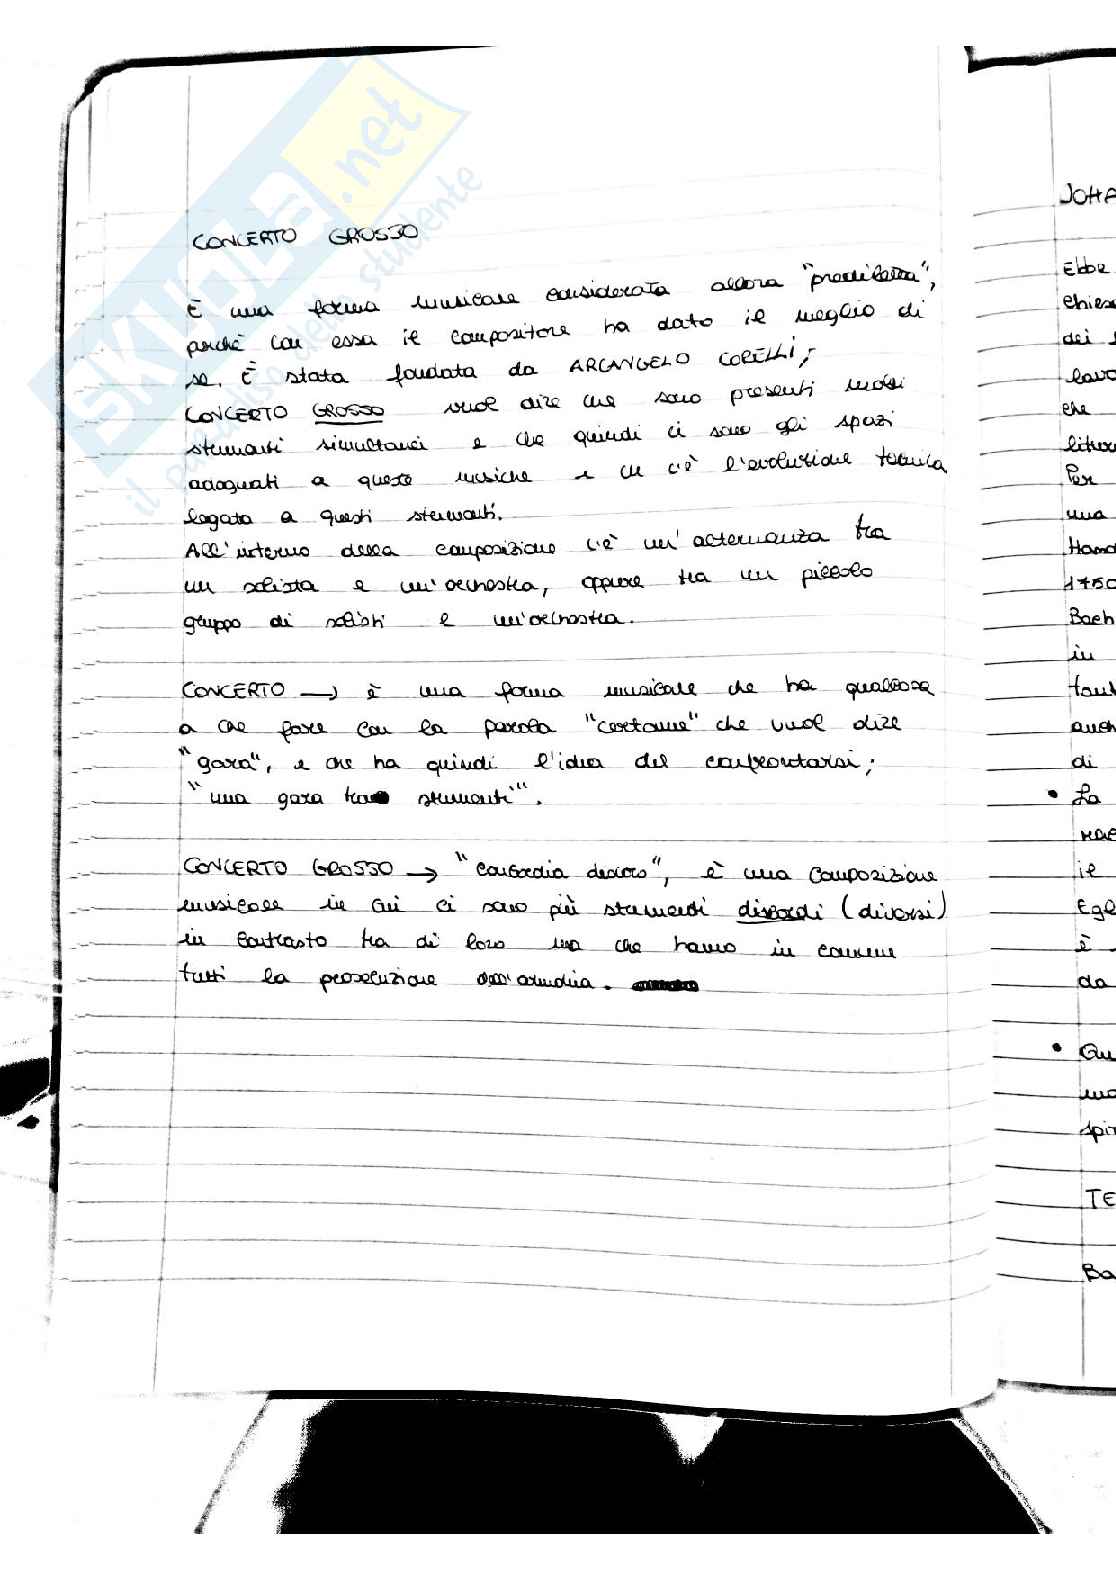 SKUOLA.net
il paradiso dello studente
CONCERTO GROSSO
È una forma musicale considerata allora "prediletta",
perchè con essa il compositore ha dato il meglio di
se. È stata fondata da ARCANGELO CORELLI;
CONCERTO GROSSO vuol dire che sono presenti molti
strumenti simultanei e che quindi ci sono gli spazi
adeguati a queste musiche e che c'è l'evoluzione tecnica
legata a questi strumenti.
All'interno della composizione c'è un'alternanza tra
un solista e un'orchestra, oppure tra un piccolo
gruppo di solisti e un'orchestra.
CONCERTO → è una forma musicale che ha qualcosa
a che fare con la parola "certame" che vuol dire
"gara", e che ha quindi l'idea del confrontarsi;
"una gara tra strumenti".
CONCERTO GROSSO → "concordia discors", è una composizione
musicale in cui ci sono più strumenti discordi (diversi)
in contrasto tra di loro ma che hanno in comune
tutti la prosecuzione dell'armonia.
JOHA
Ebbe
chiesa
dei
lavo
che
Per
una
Hand
1750
Bach
in
anch
di
• La
il
Egl
è
da
• Qu
spir
TE
Ba